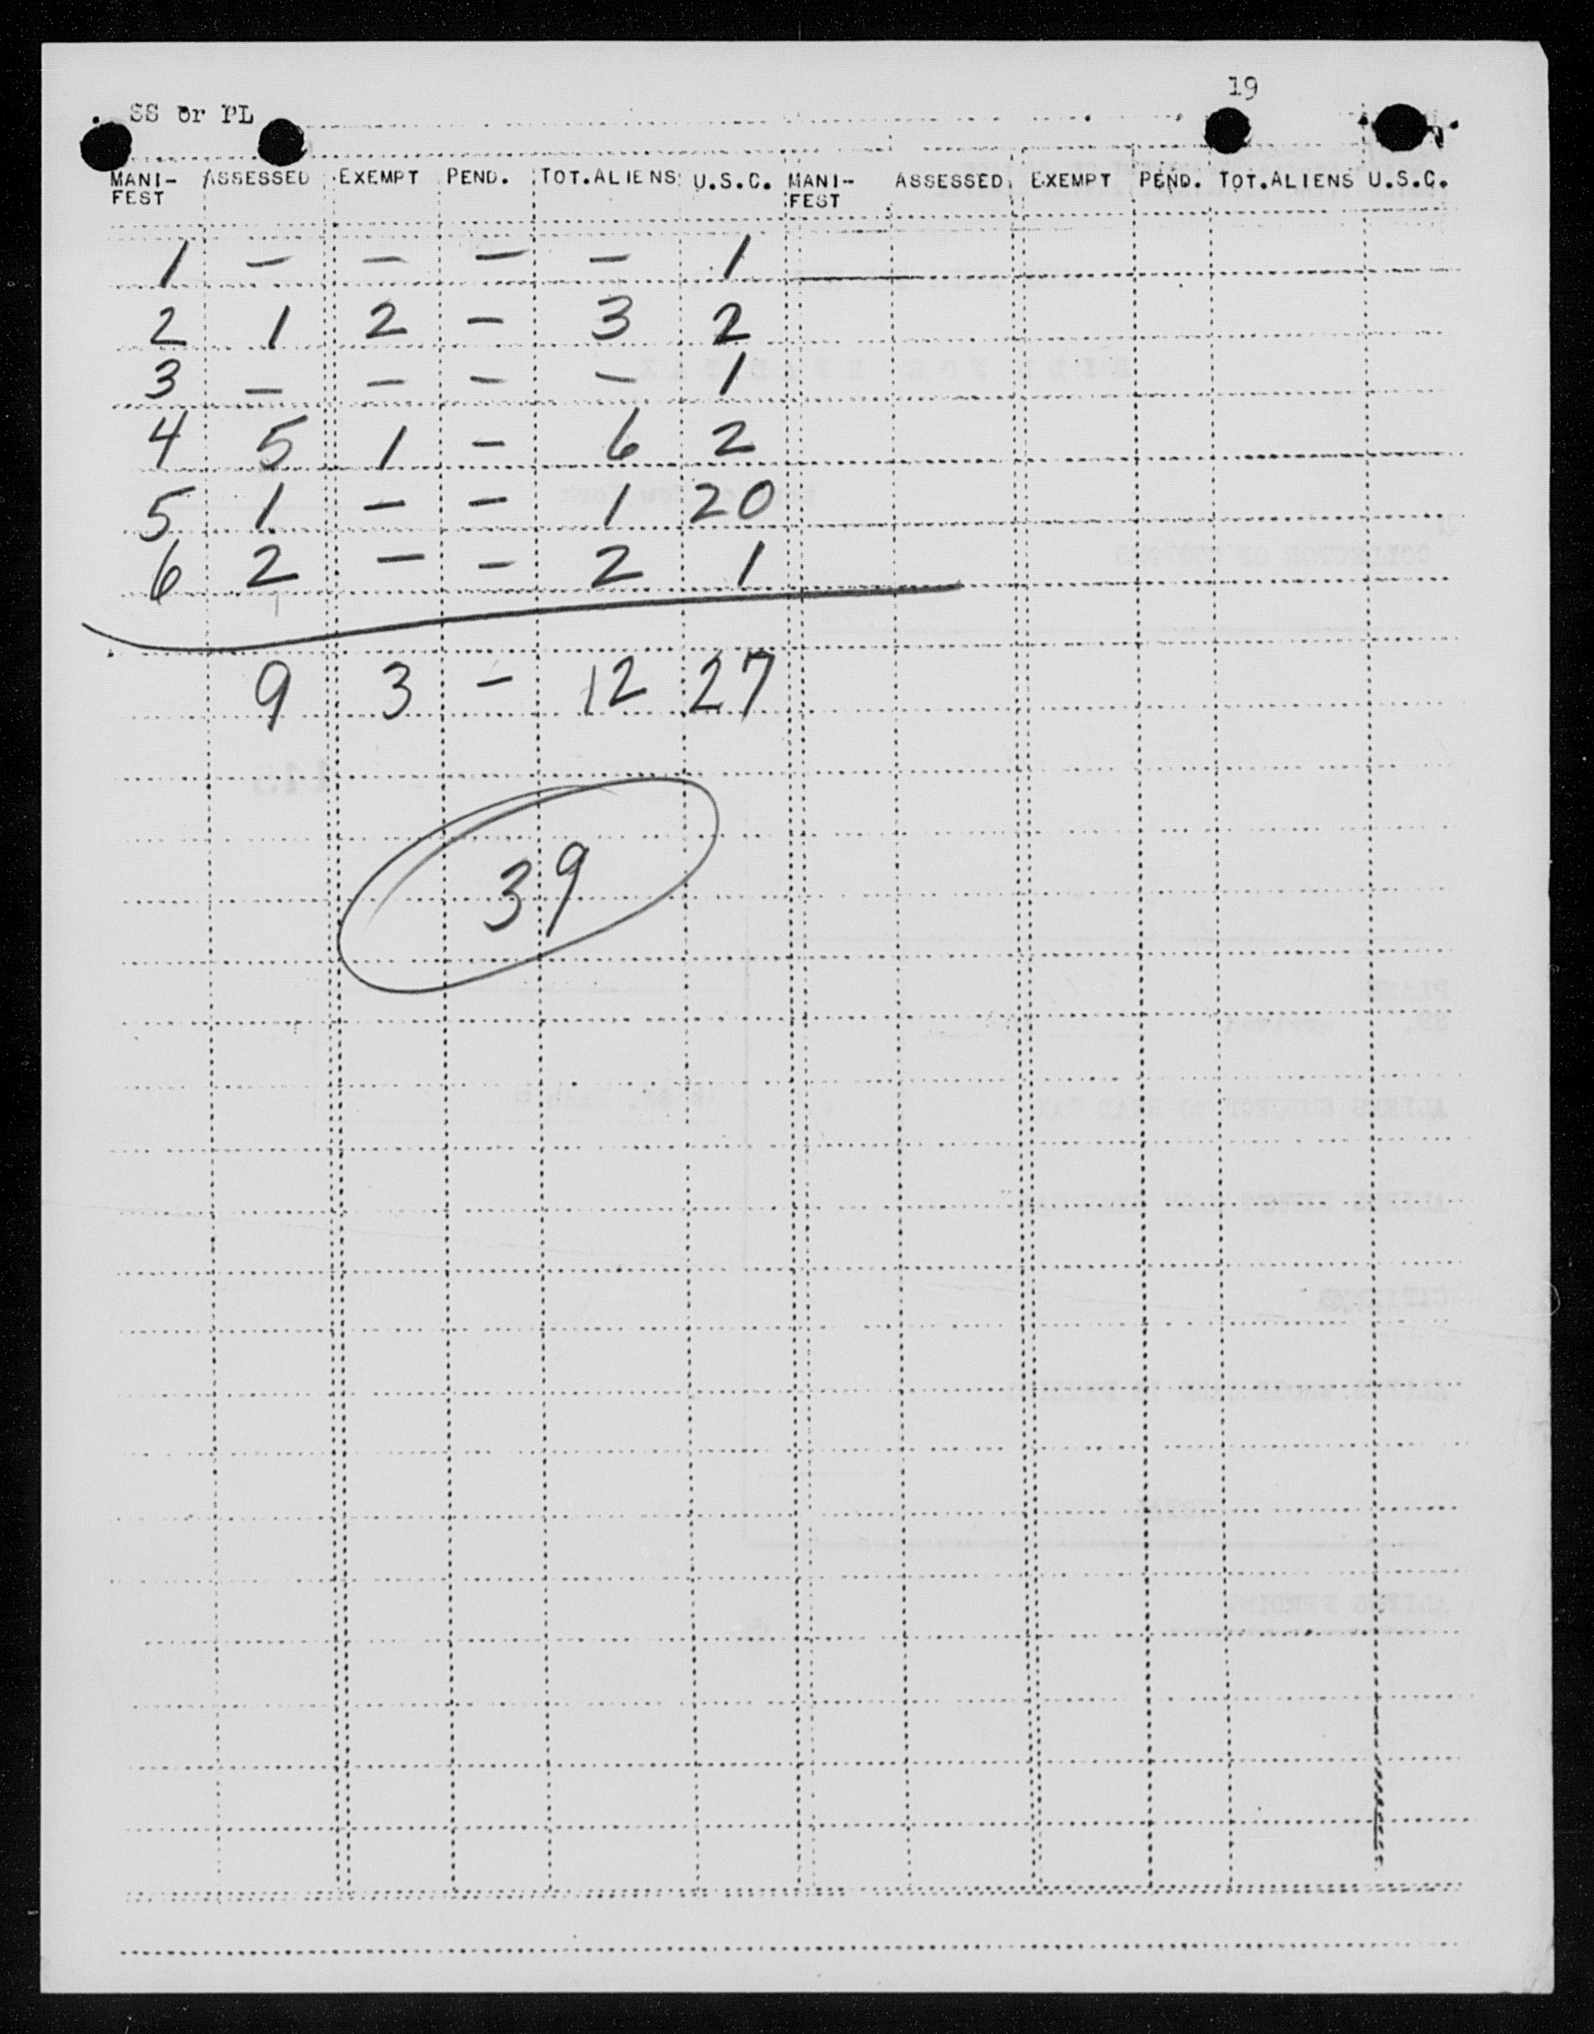 19
SS or PL
MANI- ASSESSED EXEMPT PEND. TOT.ALIENS U.S.C. MANI- ASSESSED EXEMPT PEND. TOT.ALIENS U.S.C.
FEST FEST
1 - - - - 1
2 1 2 - 3 2
3 - - - - 1
4 5 1 - 6 2
5 1 - - 1 20
6 2 - - 2 1
9 3 - 12 27
39